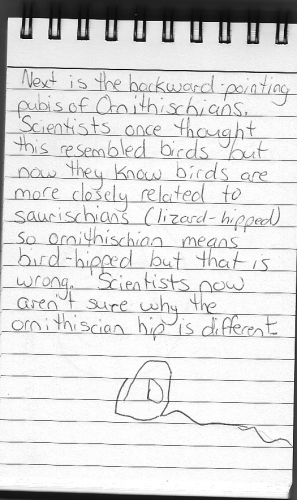 Next is the backward-pointing
pubis of Ornithischians.
Scientists once thought
this resembled birds but
now they know birds are
more closely related to
saurischians (lizard-hipped)
so ornithischian means
bird-hipped but that is
wrong. Scientists now
aren't sure why the
ornithiscian hip is different
D